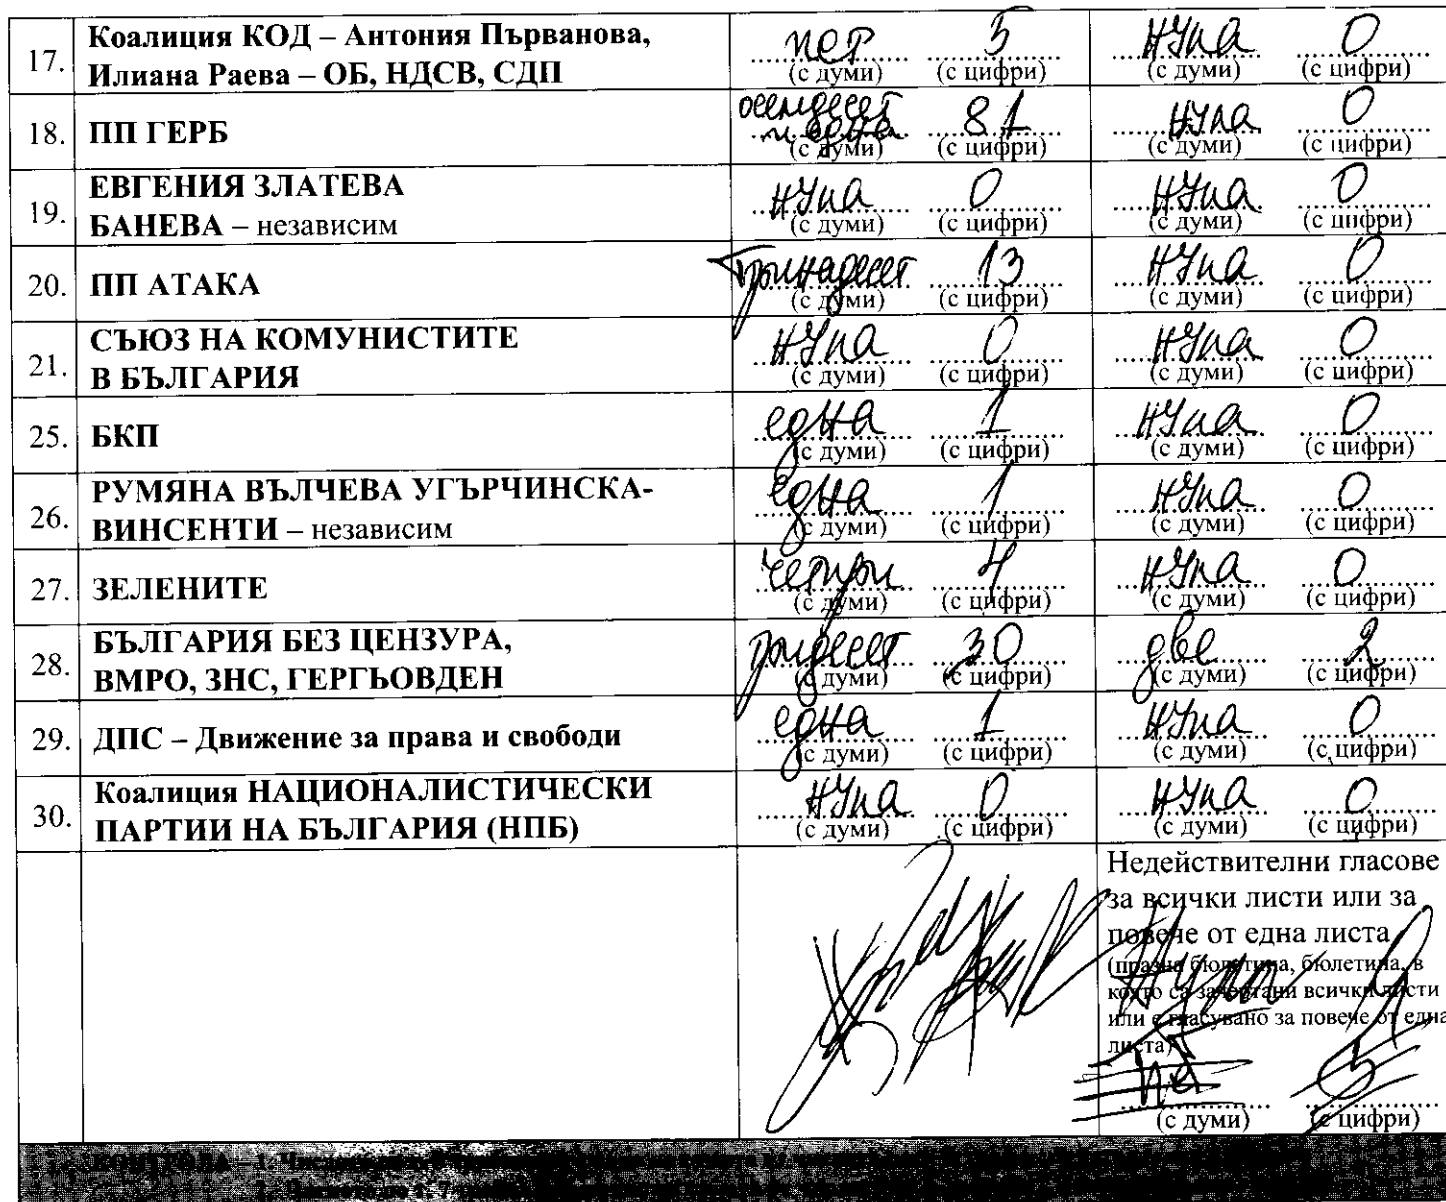 17. Коалиция КОД – Антония Първанова, Илиана Раева – ОБ, НДСВ, СДП пет 5 нула 0
(с думи) (с цифри) (с думи) (с цифри)
18. ПП ГЕРБ осемдесет и една 81 нула 0
(с думи) (с цифри) (с думи) (с цифри)
19. ЕВГЕНИЯ ЗЛАТЕВА БАНЕВА – независим нула 0 нула 0
(с думи) (с цифри) (с думи) (с цифри)
20. ПП АТАКА тринадесет 13 нула 0
(с думи) (с цифри) (с думи) (с цифри)
21. СЪЮЗ НА КОМУНИСТИТЕ В БЪЛГАРИЯ нула 0 нула 0
(с думи) (с цифри) (с думи) (с цифри)
25. БКП една 1 нула 0
(с думи) (с цифри) (с думи) (с цифри)
26. РУМЯНА ВЪЛЧЕВА УГЪРЧИНСКА-ВИНСЕНТИ – независим една 1 нула 0
(с думи) (с цифри) (с думи) (с цифри)
27. ЗЕЛЕНИТЕ четири 4 нула 0
(с думи) (с цифри) (с думи) (с цифри)
28. БЪЛГАРИЯ БЕЗ ЦЕНЗУРА, ВМРО, ЗНС, ГЕРГЬОВДЕН тридесет 30 две 2
(с думи) (с цифри) (с думи) (с цифри)
29. ДПС – Движение за права и свободи една 1 нула 0
(с думи) (с цифри) (с думи) (с цифри)
30. Коалиция НАЦИОНАЛИСТИЧЕСКИ ПАРТИИ НА БЪЛГАРИЯ (НПБ) нула 0 нула 0
(с думи) (с цифри) (с думи) (с цифри)
Недействителни гласове
за всички листи или за
повече от една листа
(празна бюлетина, бюлетина, в
която са зачертани всички листи
или е гласувано за повече от една
листа)
нула
(с думи) (с цифри)
КОНТРОЛА – 1.